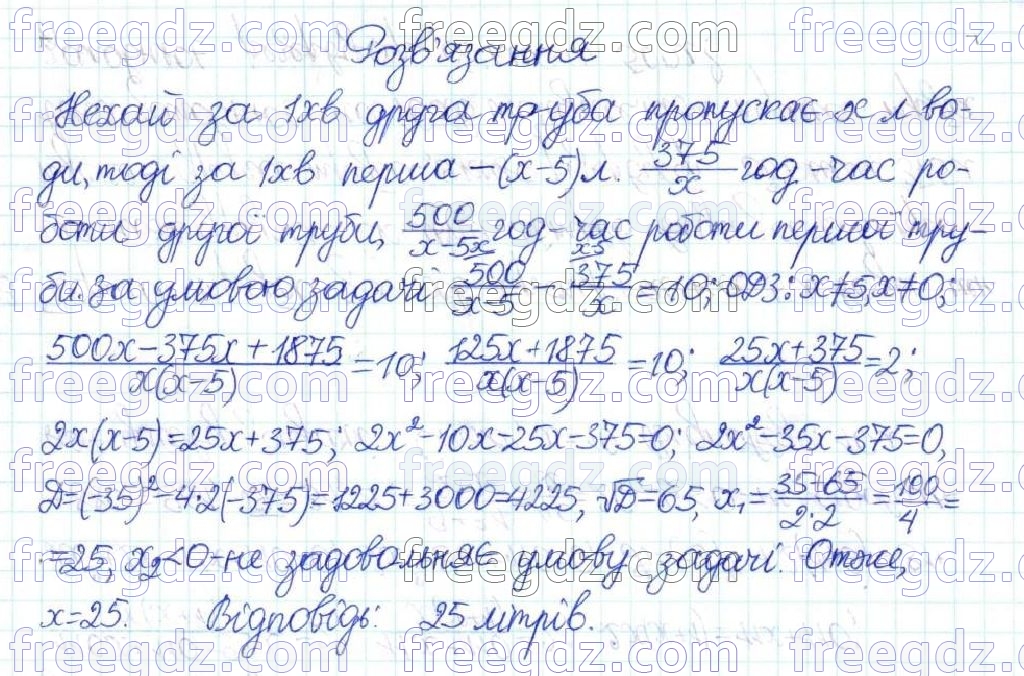 Розв'язання
Нехай за 1хв друга труба пропускає x л во-
ди, тоді за 1хв перша – (x-5) л. 375/x год - час ро-
боти другої труби, 500/(x-5) год - час роботи першої тру-
би. За умовою задачі 500/(x-5) - 375/x = 10; ОДЗ: x≠5, x≠0;
(500x-375x+1875)/(x(x-5)) = 10; (125x+1875)/(x(x-5)) = 10; (25x+375)/(x(x-5)) = 2;
2x(x-5)=25x+375; 2x²-10x-25x-375=0; 2x²-35x-375=0,
D=(-35)²-4·2(-375)=1225+3000=4225, √D=65, x₁=(35+65)/(2·2)=100/4=
=25, x₂<0-не задовольняє умову задачі. Отже,
x=25. Відповідь: 25 літрів.
freegdz.com